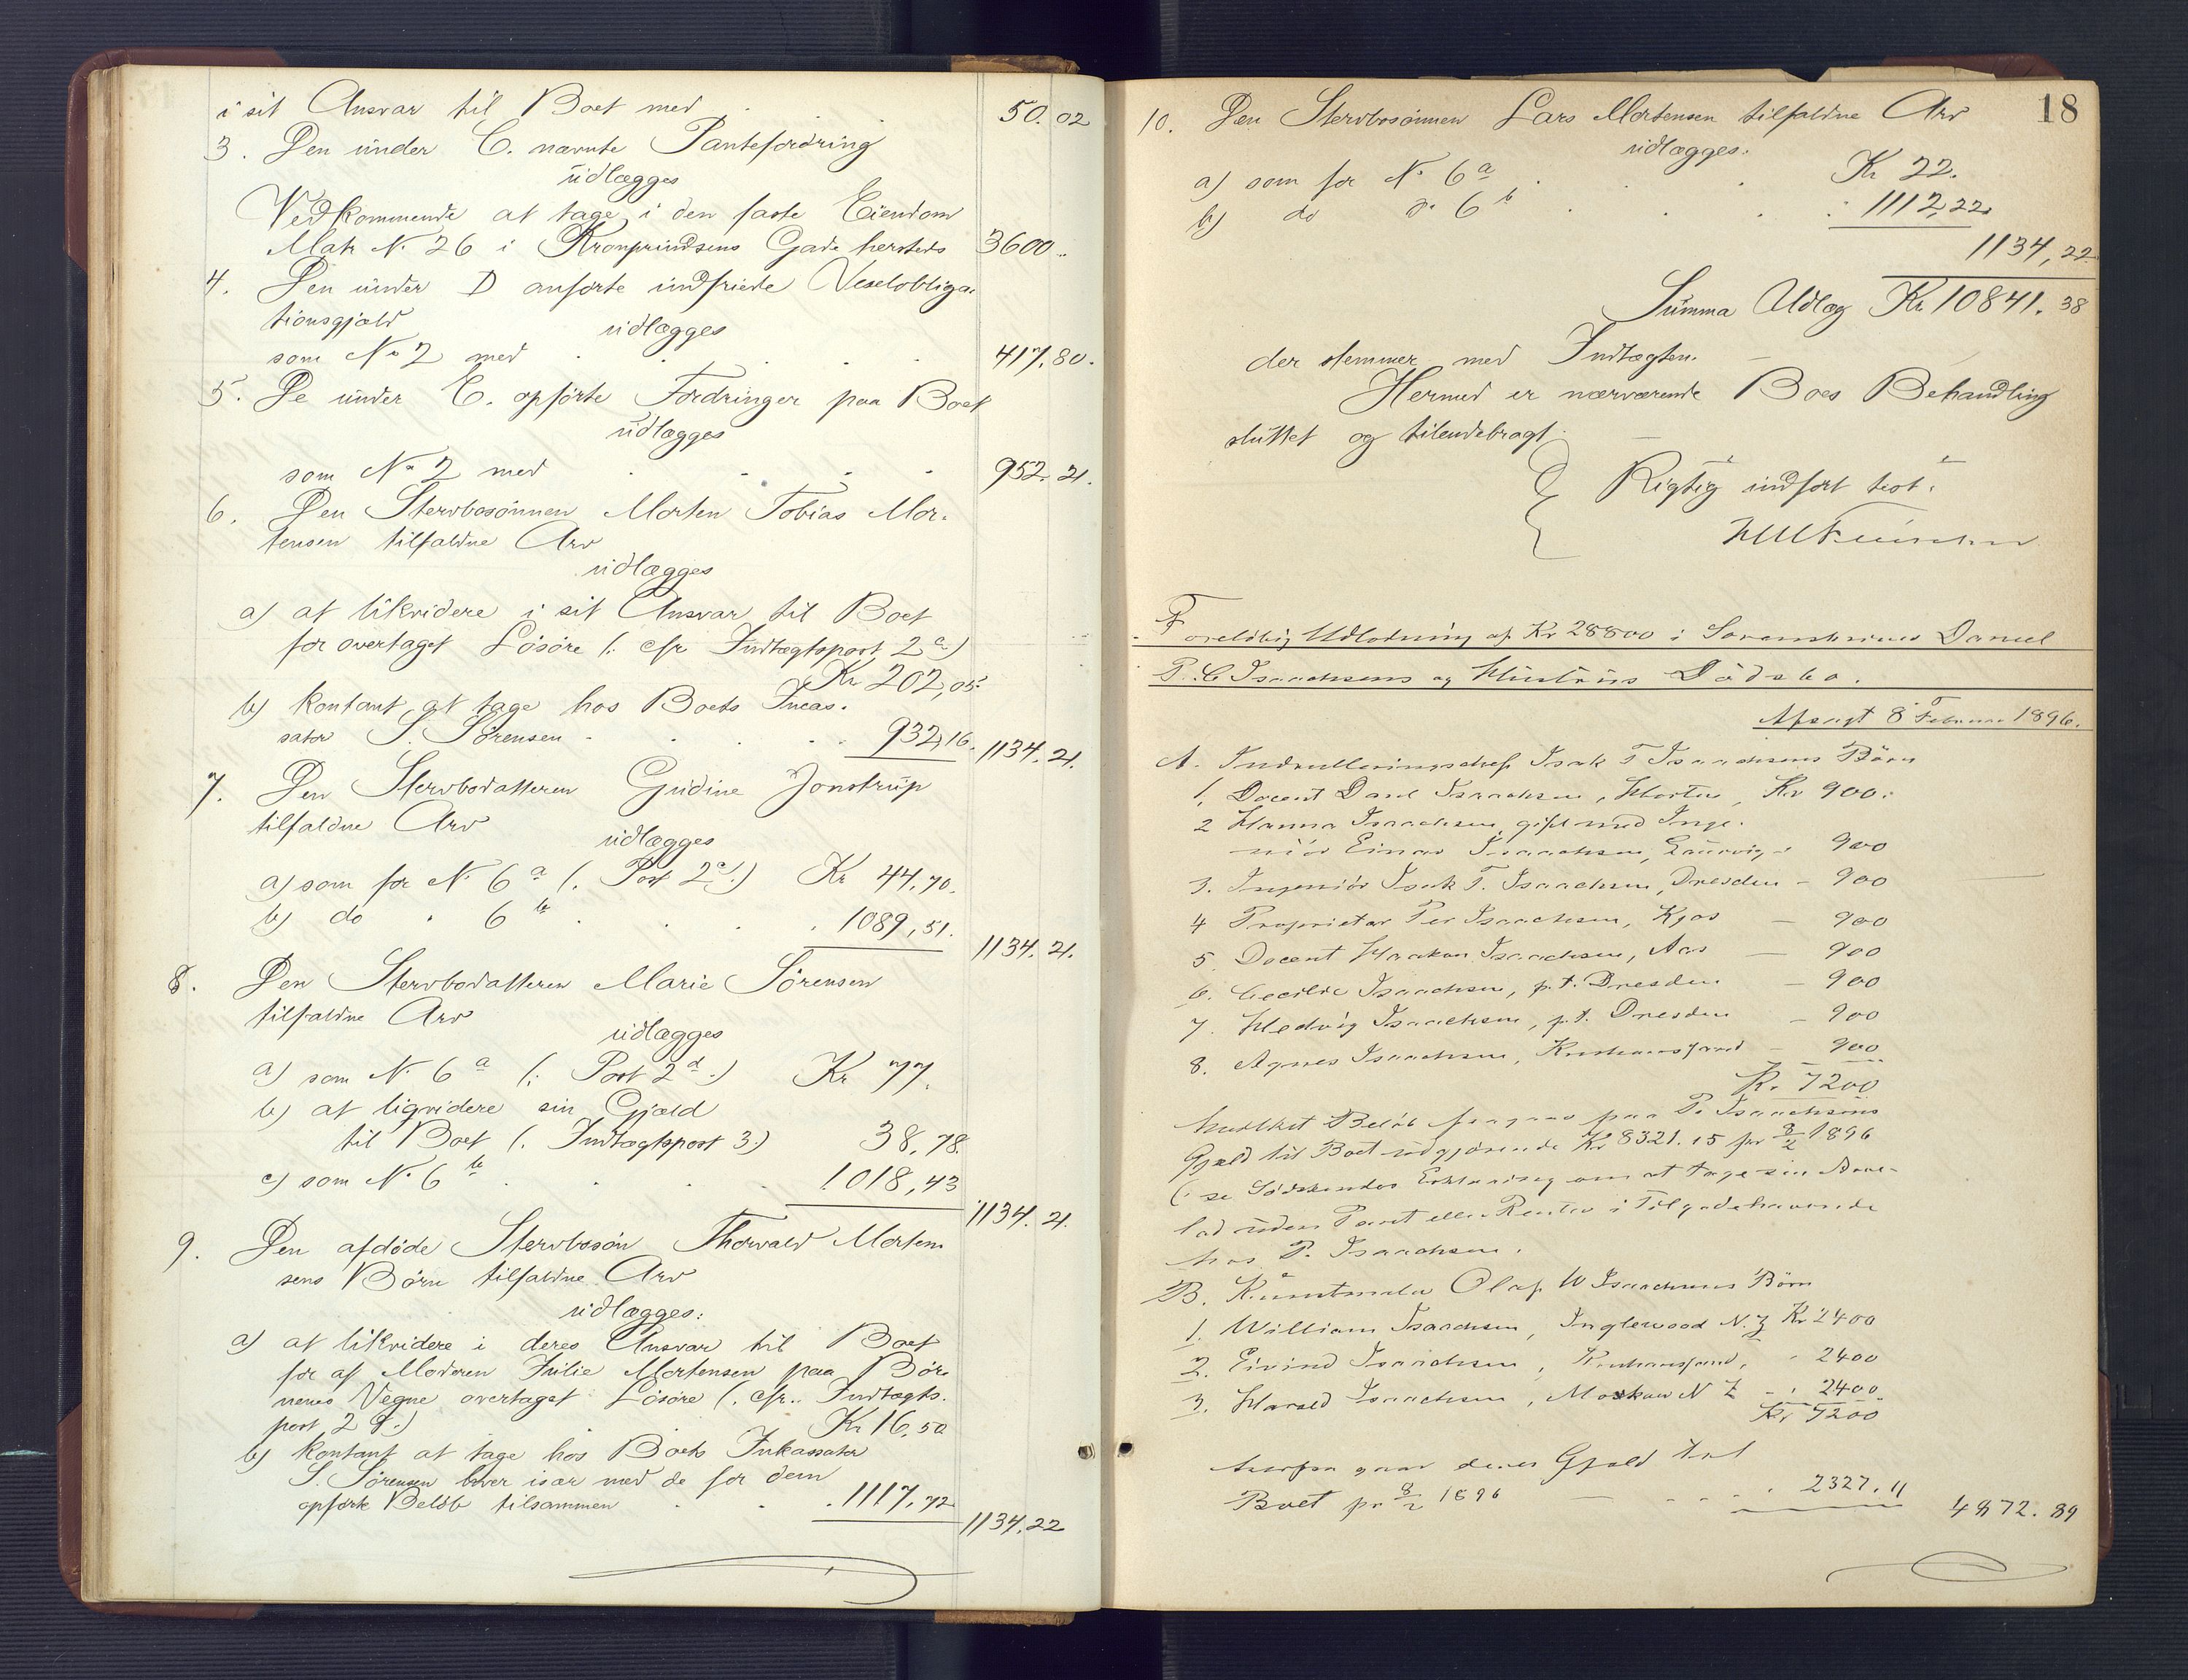 i sit Ansvar til Boet med 50.02
3. Den under C. nævnte Pantefordring
udlægges
Vedkommende at tage i den faste Eiendom
Matr No 26 i Kronprindsens Gade hersteds 3600.
4. Den under D anførte indfriede Vexelobliga-
tionsgjæld udlægges
som No 2 med 417.80.
5. De under E. opførte Fordringer paa Boet
udlægges
som No 2 med 952.21.
6. Den Stervbosönnen Morten Tobias Mor-
tensen tilfaldne Arv
udlægges
a) at likvidere i sit Ansvar til Boet
for overtaget Lösöre (: cfr Indtægtspost 2 c)
Kr 202,05
b) kontant at tage hos Boets Incas-
sator S. Sörensen 932,16. 1134.21.
7. Den Stervbodatteren Gudine Jonstrup
tilfaldne Arv
udlægges
a) som for No 6 a (: Post 2 :) Kr 44,70.
b) do " 6 b 1089,51.
1134.21.
8. Den Stervbodatteren Marie Sörensen
tilfaldne Arv
udlægges
a) som No 6 a (: Post 2 d :) Kr 77.
b) at liqvidere sin Gjæld
til Boet (: Indtægtspost 3:) 38,78.
c) som No 6 b 1018,43
1134.21.
9. Den afdöde Stervbosön Thorvald Morten-
sens Börn tilfaldne Arv
udlægges:
a) at likvidere i deres Ansvar til Boet
for af Moderen Julie Mortensen paa Bör-
nenes Vegne overtaget Lösöre (: cfr. Indtægts-
post 2 :) Kr 16.50
b) kontant at tage hos Boets Inkassator
S. Sörensen hver især med de for dem
opførte Belöb tilsammen 1117,72
1134.22
18
10. Den Stervbosönnen Lars Mortensen tilfaldne Arv
udlægges:
a) som for No 6 a Kr 22.
b) do " 6 b 1112,22
1134,22
Summa Udlæg Kr. 10841.38
der stemmer med Indtægten.
Hermed er nærværende Boes Behandling
sluttet og tilendebragt.
Rigtig indfört test.
Foreløbig Udlodning af Kr 28800 i Sorenskriver Daniel
P. C Isaachsens og Hustrus Dödsbo.
Afsagt 8 Februar 1896.
A. Indrulleringschef Isak T Isaachsens Börn
1. Docent Danl Isaachsen, Horten, Kr 900.
2 Hanna Isaachsen gift med Inge-
niör Einar Isaachsen, Laurvig " 900
3. Ingeniör Isak T. Isaachsen, Dresden - 900
4 Proprietær Per Isaachsen, Kjos - 900
5. Docent Haakon Isaachsen, Aas - 900
6. Cecilie Isaachsen, p.t. Dresden - 900
7. Hedvig Isaachsen, p.t. Dresden - 900
8. Agnes Isaachsen, Kristiansand - 900
Kr 7200
hvilket Belöb fragaar paa P. Isaachsens
Gjæld til Boet udgjørende Kr 8321.15 pr 8/2 1896
(: se Södskendes Erklæring om at tage sin Arve-
lod uden Pant eller Renter i Tilgodehavende
hos P. Isaachsen.
B. Kunstmaler Olaf W Isaachsens Börn
1. William Isaachsen, Inglewood N.Z Kr 2400
2. Eivind Isaachsen, Kristiansand, " 2400
3. Harald Isaachsen, N Z - " 2400
Kr 7200
herfra gaar deres Gjæld til
Boet pr 8/2 1896 2327.11
4872.89